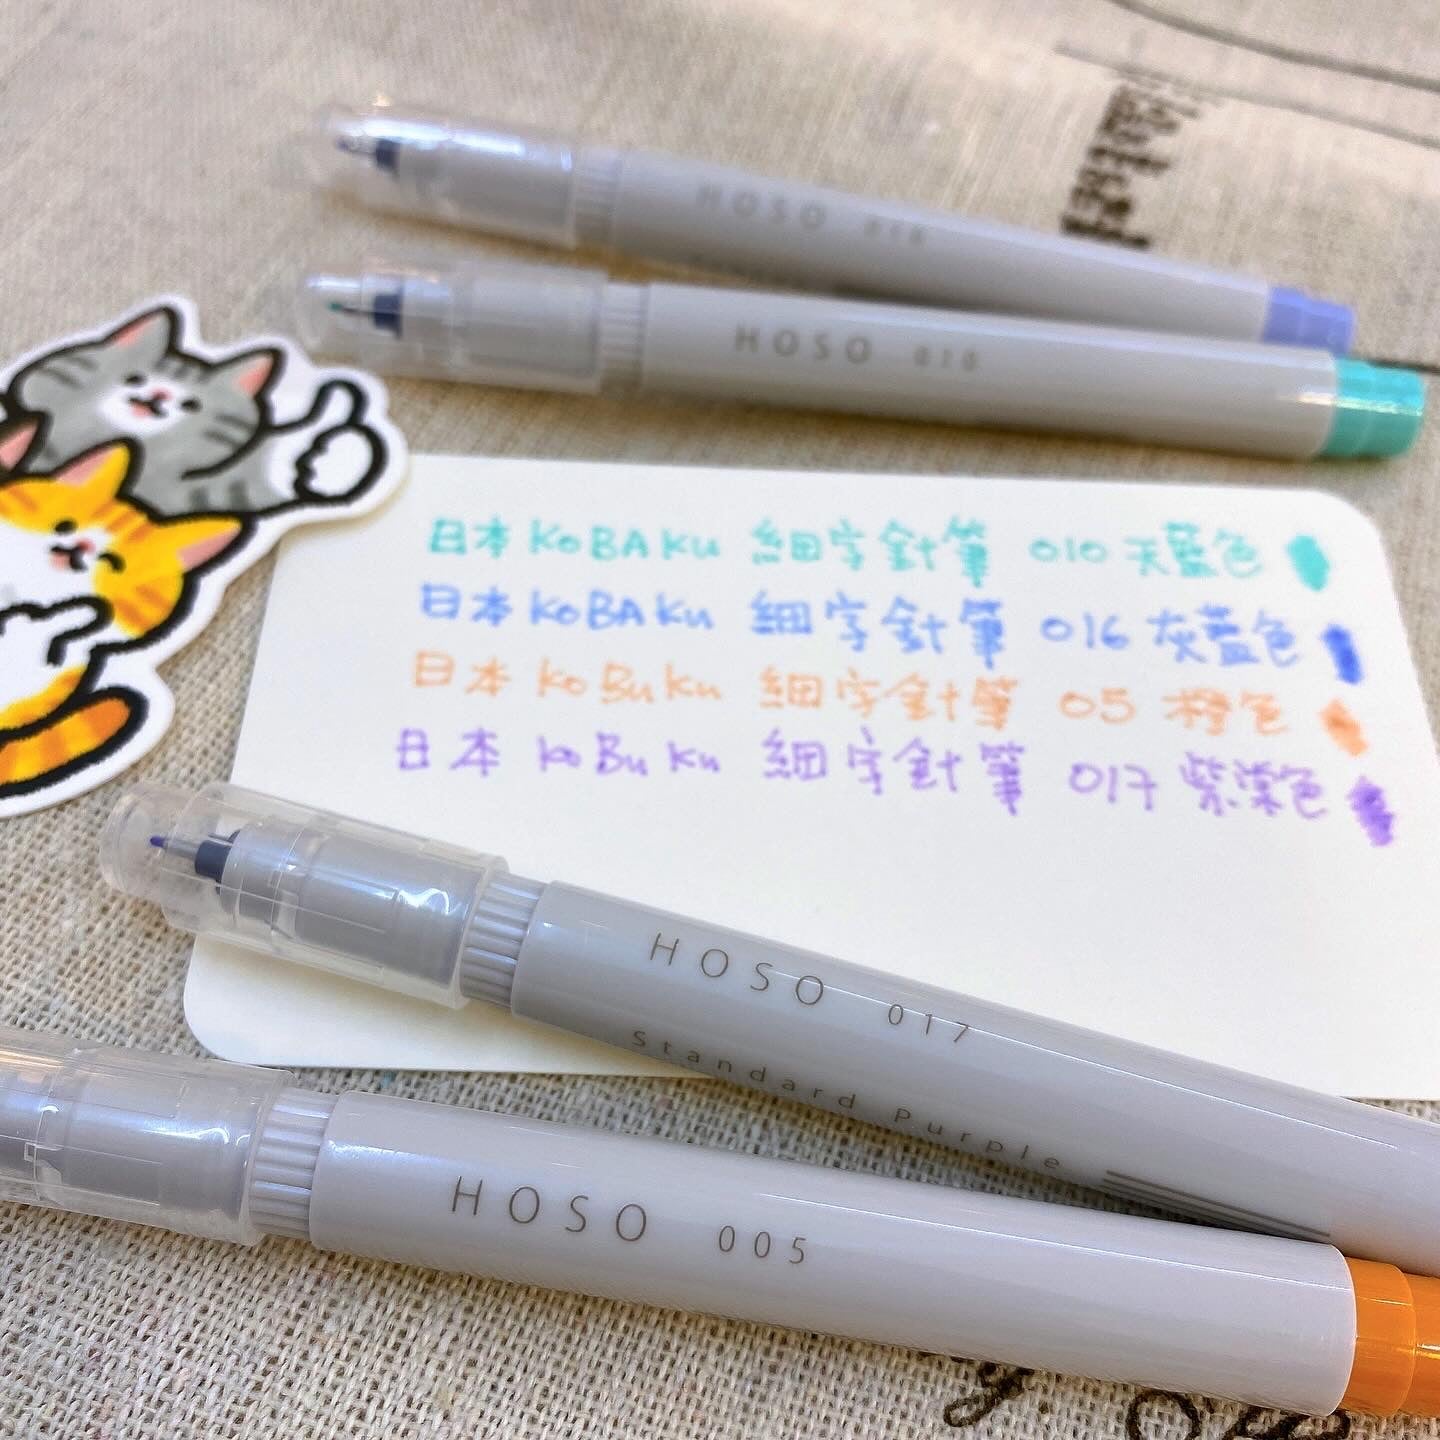 HOSO 016
HOSO 010
日本 KOBAKU 細字針筆 010 天藍色
日本 KOBAKU 細字針筆 016 灰藍色
日本 KoBuKu 細字針筆 05 橙色
日本 KoBuKu 細字針筆 017 紫棠色
HOSO 017
Standard Purple
HOSO 005